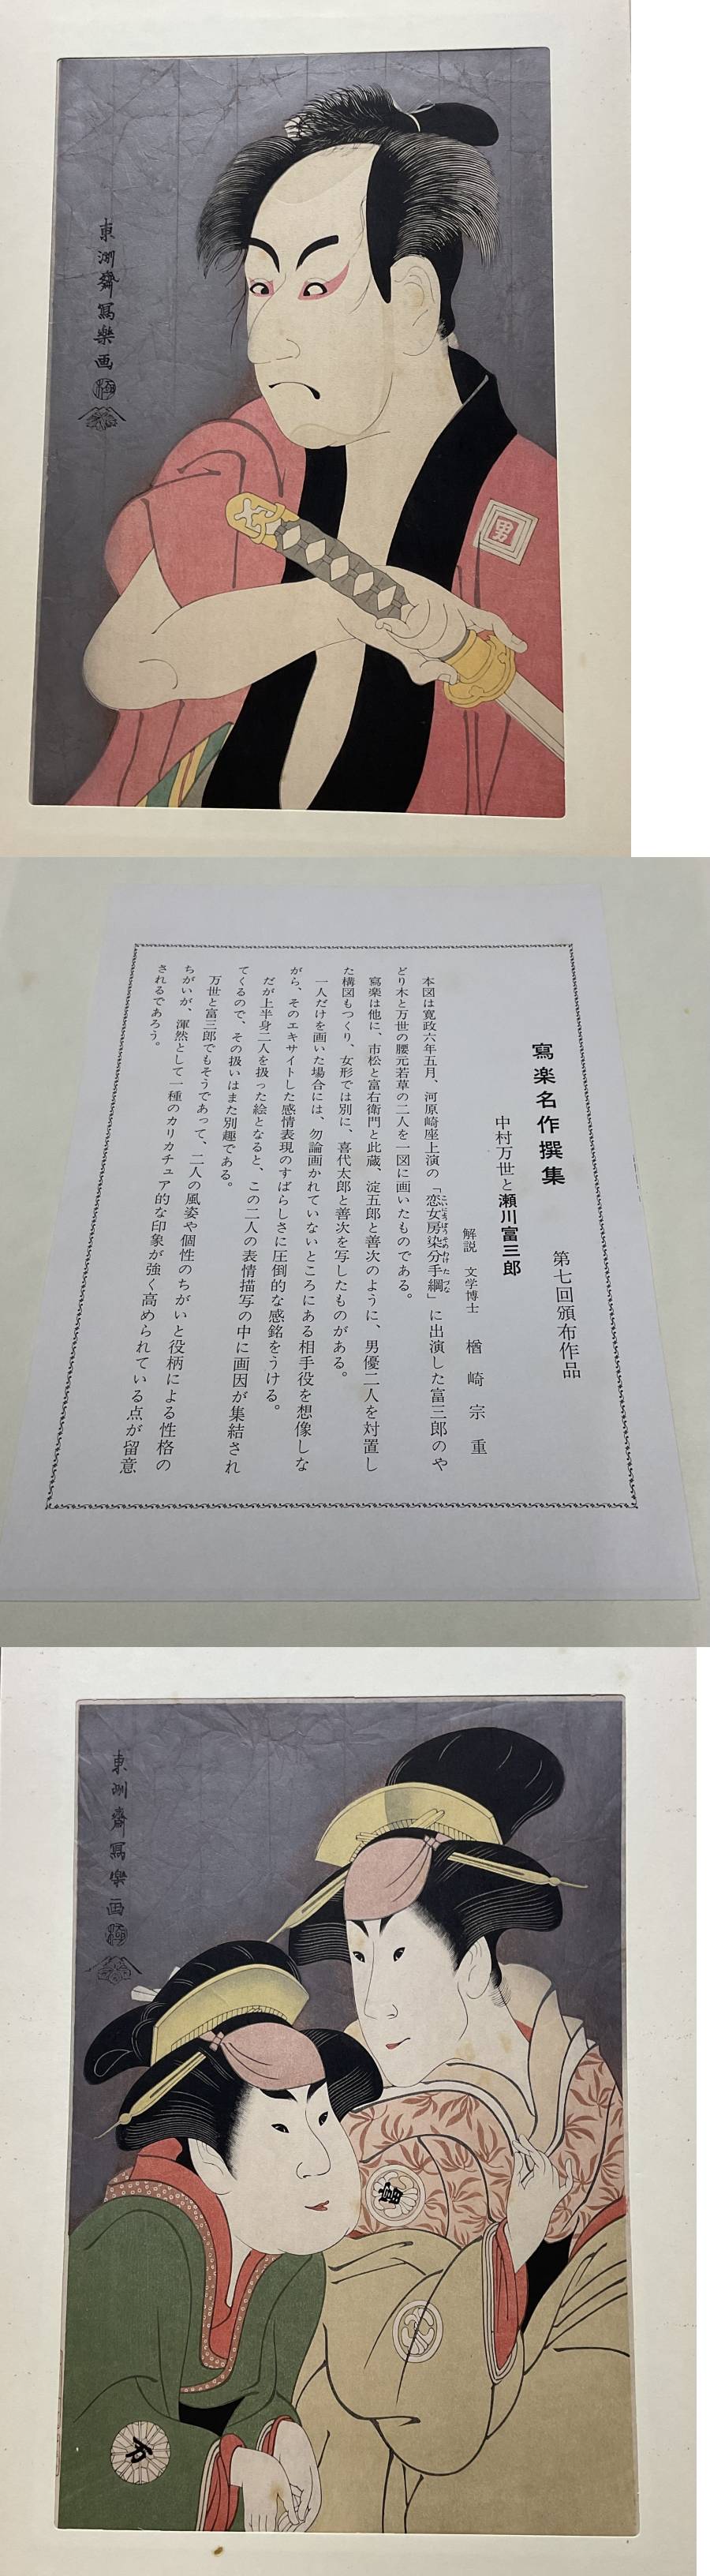 東洲斎寫樂画
極
男
寫楽名作撰集 第七回頒布作品
中村万世と瀬川富三郎
解説 文学博士 楢崎宗重
本図は寛政六年五月、河原崎座上演の「恋女房染分手綱」に出演した富三郎のや
どり木と万世の腰元若草の二人を一図に画いたものである。
寫楽は他に、市松と富右衛門と此蔵、淀五郎と善次のように、男優二人を対置し
た構図もつくり、女形では別に、喜代太郎と善次を写したものがある。
一人だけを画いた場合には、勿論画かれていないところにある相手役を想像しな
がら、そのエキサイトした感情表現のすばらしさに圧倒的な感銘をうける。
だが上半身二人を扱った絵となると、この二人の表情描写の中に画因が集結され
てくるので、その扱いはまた別趣である。
万世と富三郎でもそうであって、二人の風姿や個性のちがいと役柄による性格の
ちがいが、渾然として一種のカリカチュア的な印象が強く高められている点が留意
されるであろう。
東洲斎寫樂画
極